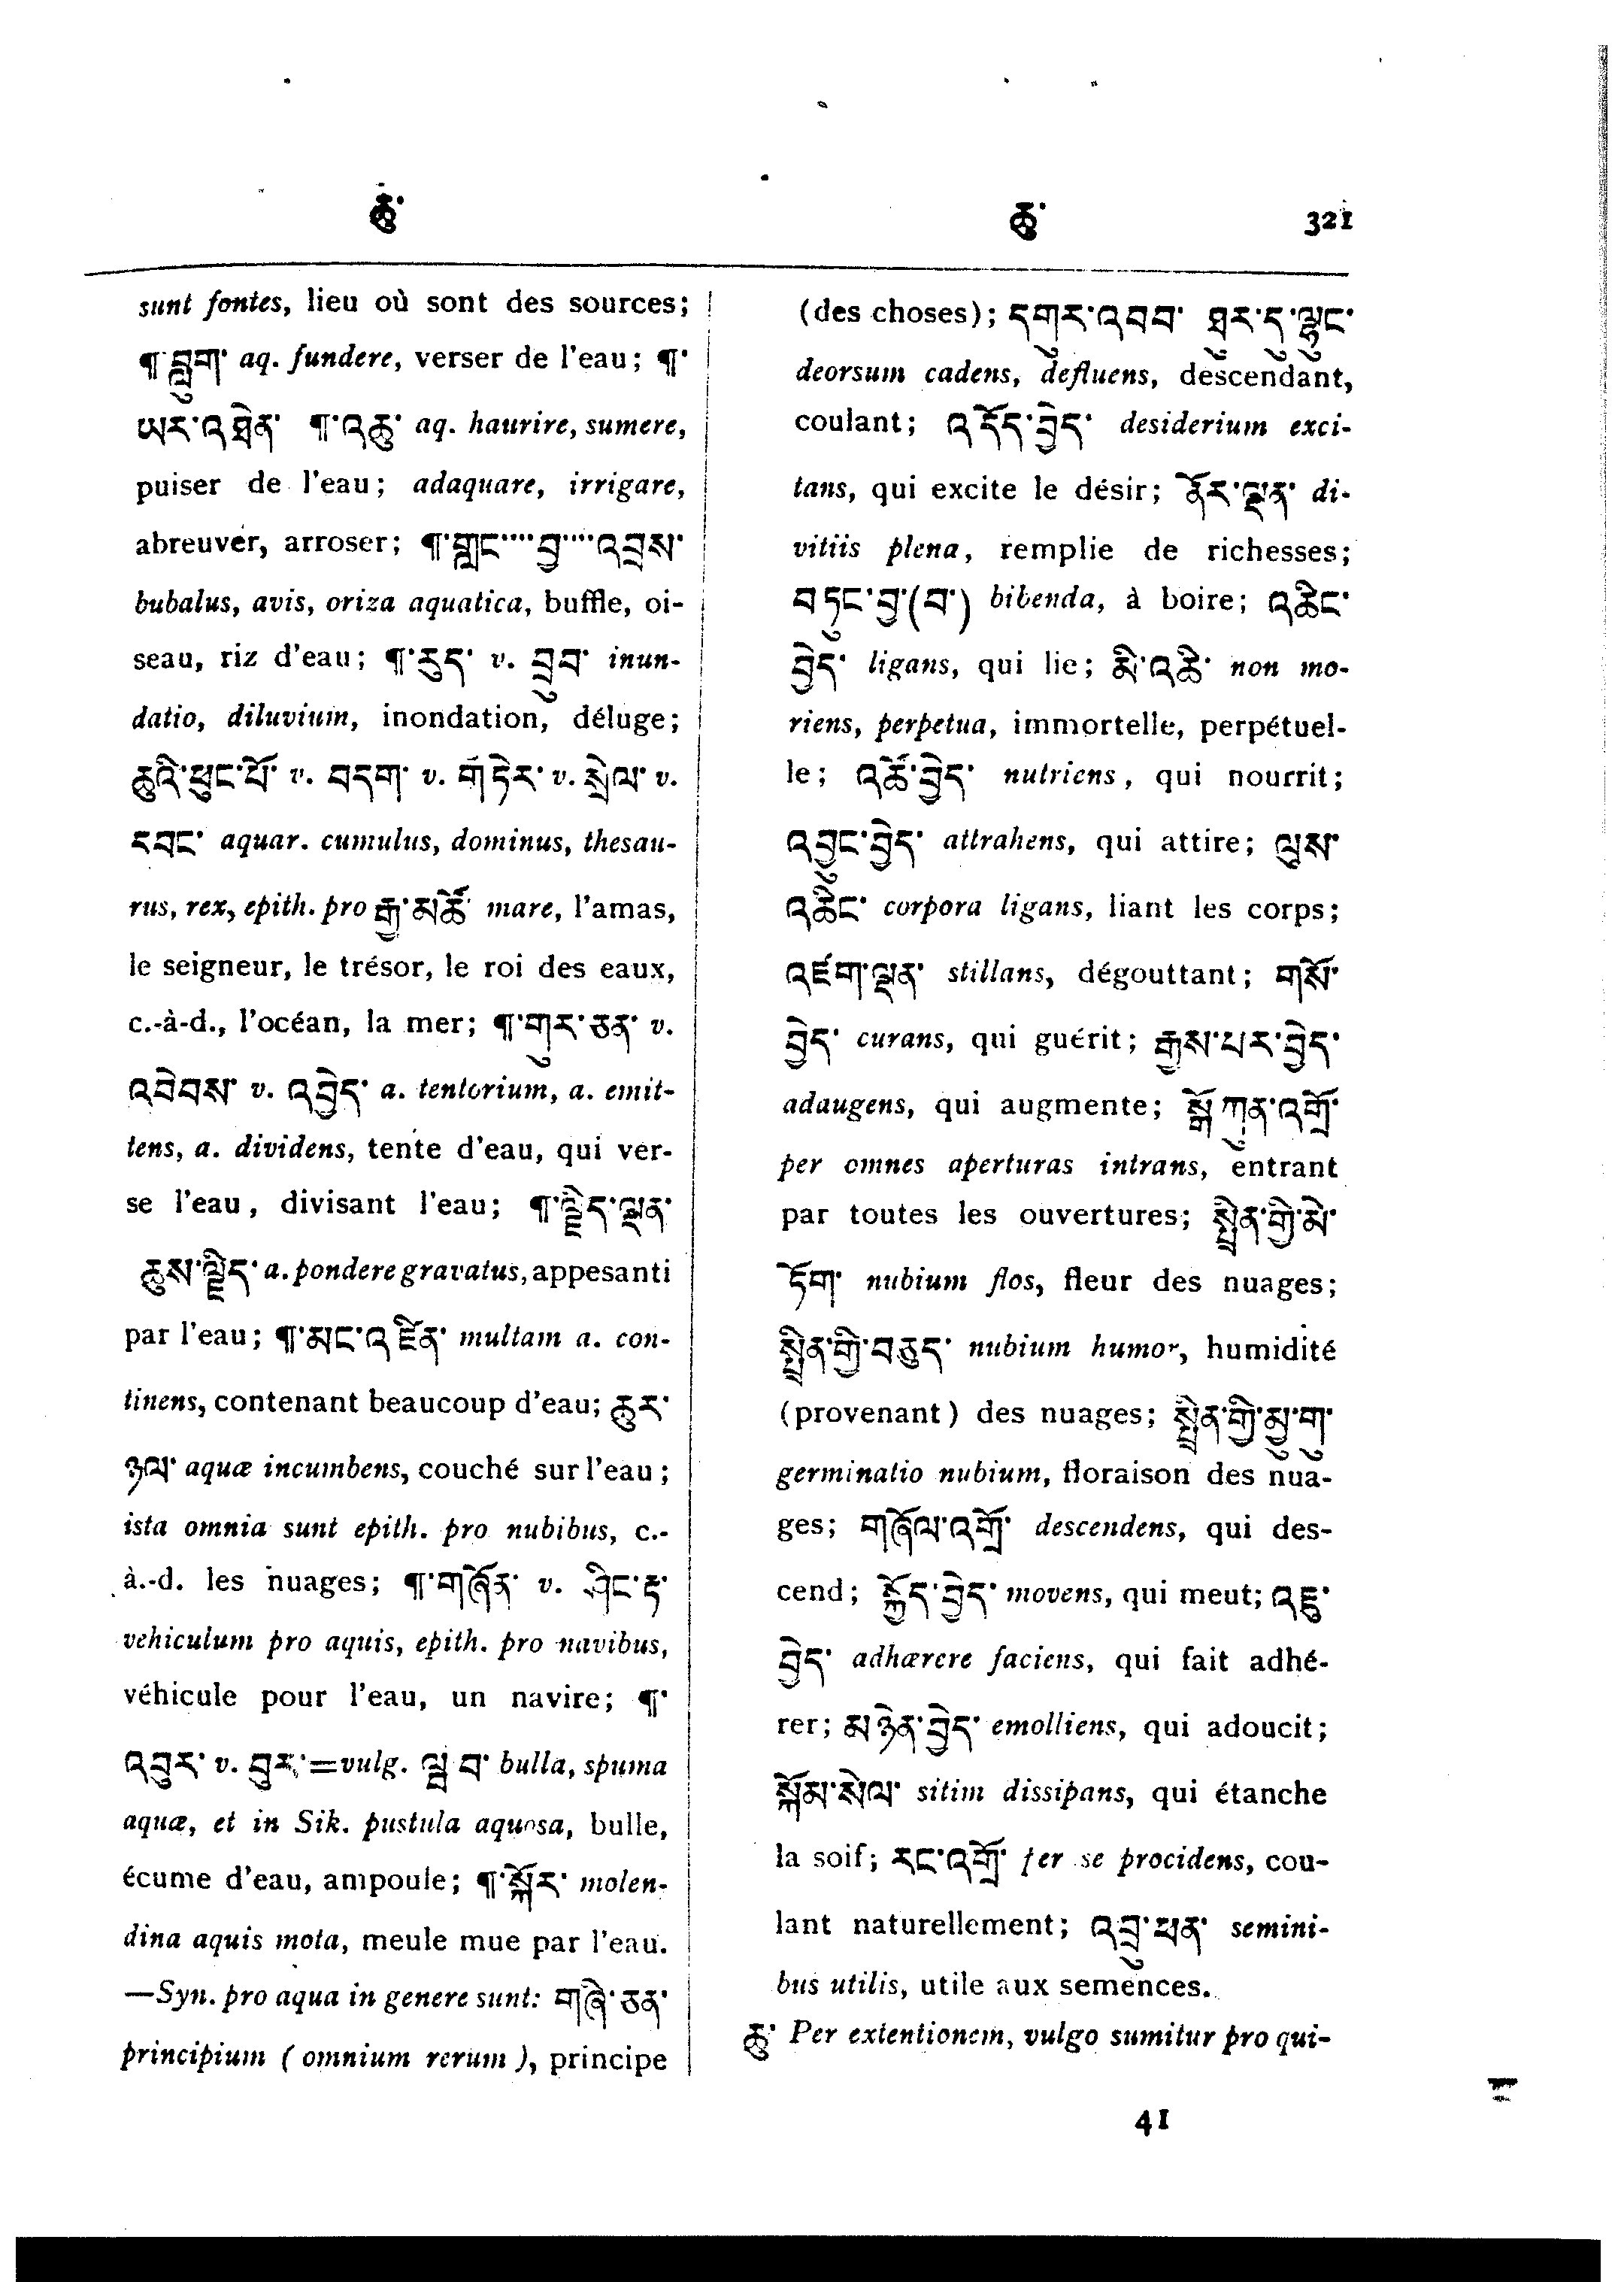 ཆུ་
ཆུ་ 321
sunt fontes, lieu où sont des sources;
¶་བླུག་ aq. fundere, verser de l'eau; ¶་
ཡར་འཐེན་ ¶་འཆུ་ aq. haurire, sumere,
puiser de l'eau; adaquare, irrigare,
abreuver, arroser; ¶་གླང་....བྱ་....འབྲས་
bubalus, avis, oriza aquatica, buffle, oi-
seau, riz d'eau; ¶་རུད་ v. བྲུབ་ inun-
datio, diluvium, inondation, déluge;
ཆུའི་ཕུང་པོ་ v. བདག་ v. གཏེར་ v. སྲེལ་ v.
དབང་ aquar. cumulus, dominus, thesau-
rus, rex, epith. pro རྒྱ་མཚོ་ mare, l'amas,
le seigneur, le trésor, le roi des eaux,
c.-à-d., l'océan, la mer; ¶་གུར་ཅན་ v.
འབེབས་ v. འབྱེད་ a. tentorium, a. emit-
tens, a. dividens, tente d'eau, qui ver-
se l'eau, divisant l'eau; ¶་ལྗེད་ལྡན་
ཆུས་ལྗིད་ a. pondere gravatus, appesanti
par l'eau; ¶་མང་འཛིན་ multam a. con-
tinens, contenant beaucoup d'eau; ཆུར་
ཉལ་ aquæ incumbens, couché sur l'eau;
ista omnia sunt epith. pro nubibus, c.-
à.-d. les nuages; ¶་གཞོན་ v. ཤིང་རྟ་
vehiculum pro aquis, epith. pro navibus,
véhicule pour l'eau, un navire; ¶་
འབུར་ v. བུར་=vulg. ལྦ་བ་ bulla, spuma
aquæ, et in Sik. pustula aquosa, bulle,
écume d'eau, ampoule; ¶་སྐོར་ molen-
dina aquis mota, meule mue par l'eau.
—Syn. pro aqua in genere sunt: གཞི་ཅན་
principium (omnium rerum), principe
(des choses); དགུར་འབབ་ ཐུར་དུ་ལྷུང་
deorsum cadens, defluens, descendant,
coulant; འདོད་བྱེད་ desiderium exci-
tans, qui excite le désir; ནོར་ལྡན་ di-
vitiis plena, remplie de richesses;
བཏུང་བྱ་(བ་) bibenda, à boire; འཆིང་
བྱེད་ ligans, qui lie; མི་འཆི་ non mo-
riens, perpetua, immortelle, perpétuel-
le; འཚོ་བྱེད་ nutriens, qui nourrit;
འབྱུང་བྱེད་ attrahens, qui attire; ལུས་
འཆིང་ corpora ligans, liant les corps;
འཛག་ལྡན་ stillans, dégouttant; གསོ་
བྱེད་ curans, qui guérit; རྒྱས་པར་བྱེད་
adaugens, qui augmente; སྒོ་ཀུན་འགྲོ་
per omnes aperturas intrans, entrant
par toutes les ouvertures; སྤྲིན་གྱི་མེ་
ཏོག་ nubium flos, fleur des nuages;
སྤྲིན་གྱི་བཅུད་ nubium humor, humidité
(provenant) des nuages; སྤྲིན་གྱི་མྱུ་གུ་
germinatio nubium, floraison des nua-
ges; གཞོལ་འགྲོ་ descendens, qui des-
cend; སྐྱོད་བྱེད་ movens, qui meut; འཇུ་
བྱེད་ adhærere faciens, qui fait adhé-
rer; མཉེན་བྱེད་ emolliens, qui adoucit;
སྐོམ་སེལ་ sitim dissipans, qui étanche
la soif; རང་འགྲོ་ per se procidens, cou-
lant naturellement; འབྲུ་ཕན་ semini-
bus utilis, utile aux semences.
ཆུ་ Per extentionem, vulgo sumitur pro qui-
41